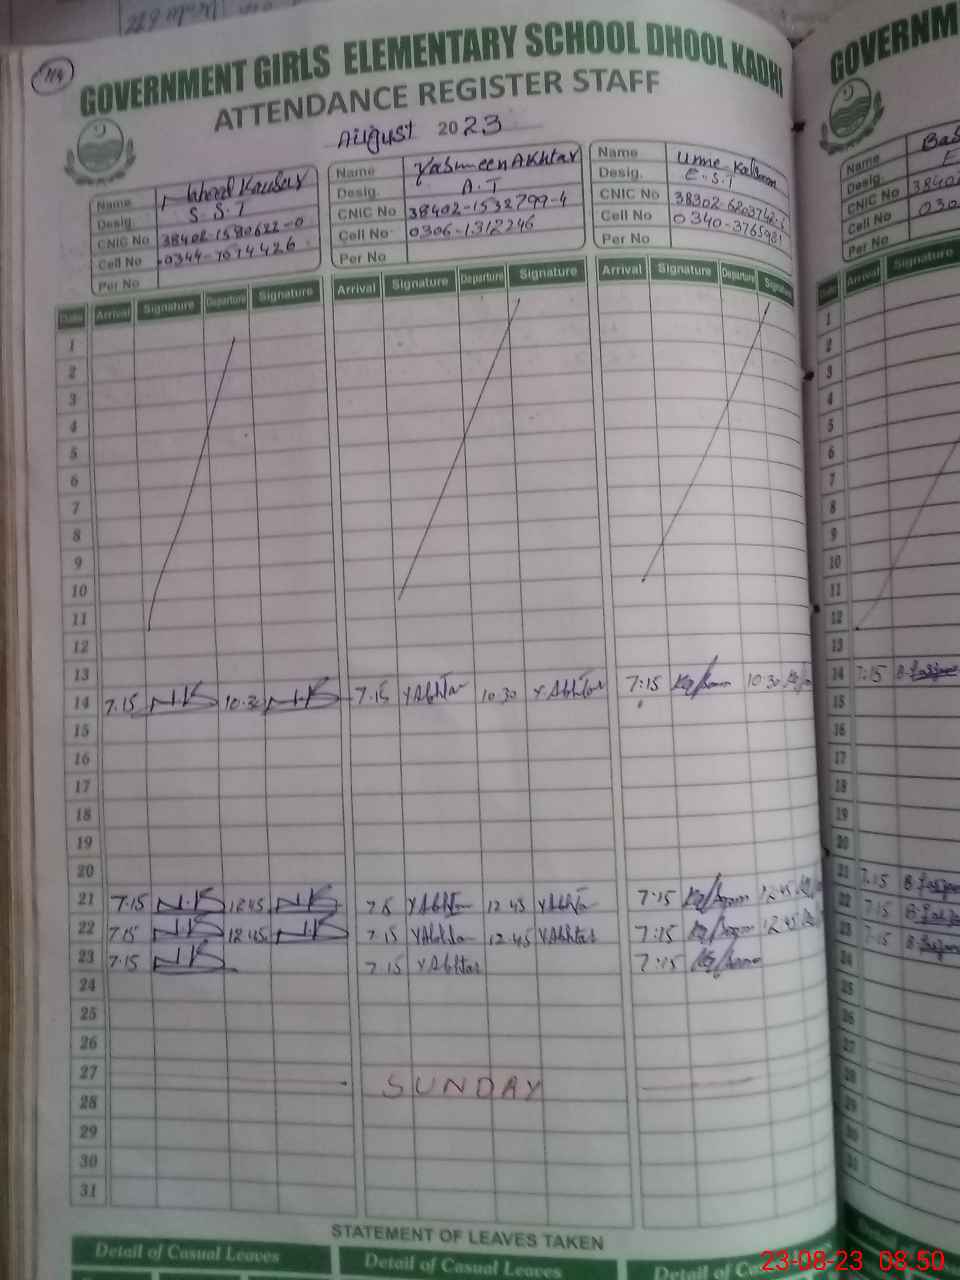 114
GOVERNMENT GIRLS ELEMENTARY SCHOOL DHOOL KADHI
ATTENDANCE REGISTER STAFF
August 2023
Name Naheed Kausar
Desig. S.S.T
CNIC No 38402-1580622-0
Cell No
Per No
Name Yasmeen Akhtar
Desig. A.T
CNIC No 38402-1532799-4
Cell No 0306-1312246
Per No
Name Ume Kalsoom
Desig. E.S.T
CNIC No
Cell No 0340-3765981
Per No
Date Arrival Signature Departure Signature Arrival Signature Departure Signature Arrival Signature Departure Signature
1
2
3
4
5
6
7
8
9
10
11
12
13
14 7.15 N.K 10.30 N.K 7.15 YAkhtar 10.30 YAkhtar 7:15 Kalsoom 10:30
15
16
17
18
19
20
21 7.15 N.K 12.45 N.K YAkhtar 12.45 YAkhtar 7:15 Kalsoom 12:45
22 7.15 N.K 12.45 N.K 7.15 YAkhtar 12.45 YAkhtar 7:15 Kalsoom 12:45
23 7.15 N.K 7.15 YAkhtar 7:15 Kalsoom
24
25
26
27 SUNDAY
28
29
30
31
STATEMENT OF LEAVES TAKEN
Detail of Casual Leaves Detail of Casual Leaves Detail of Casual Leaves
GOVERNM
Name
Desig.
CNIC No
Cell No
Per No
Date Arrival Signature
1
2
3
4
5
6
7
8
9
10
11
12
13
14 7:15
15
16
17
18
19
20
21 7.15
22 7.15
23 7.15
24
25
26
27
28
29
30
31
23-08-23 08.50